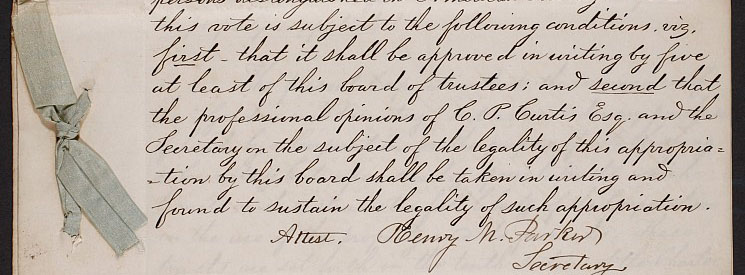 this vote is subject to the following conditions, viz,
first - that it shall be approved in writing by five
at least of this board of trustees; and second that
the professional opinions of C. P. Curtis Esq. and the
Secretary on the subject of the legality of this appropria=
=tion by this board shall be taken in writing and
found to sustain the legality of such appropriation.
Attest. Henry M. Parker
Secretary